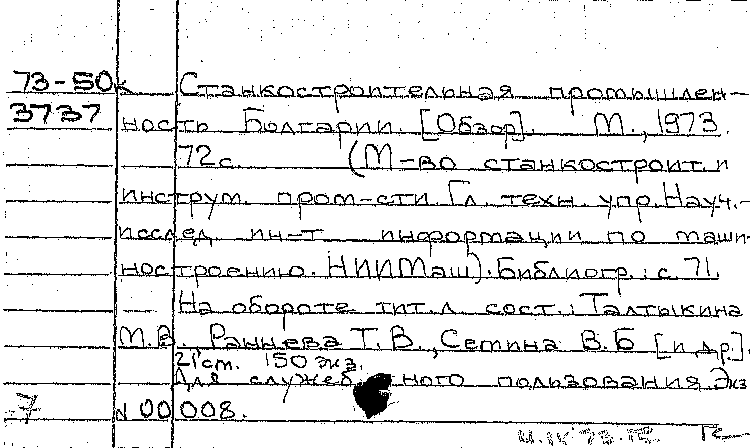 73-50к Станкостроительная промышлен-
3737 ность Болгарии. [Обзор]. М., 1973.
72с. (М-во станкостроит. и
инструм. пром-сти. Гл. техн. упр. Науч.-
исслед. ин-т информации по маши-
ностроению. НИИМаш). Библиогр.: с. 71.
На обороте тит. л. сост.: Талтыкина
М.В., Раннева Т.В., Семина В.Б [и др.].
21 см. 150 экз.
Для служебного пользования. Экз
-7 N 00008.